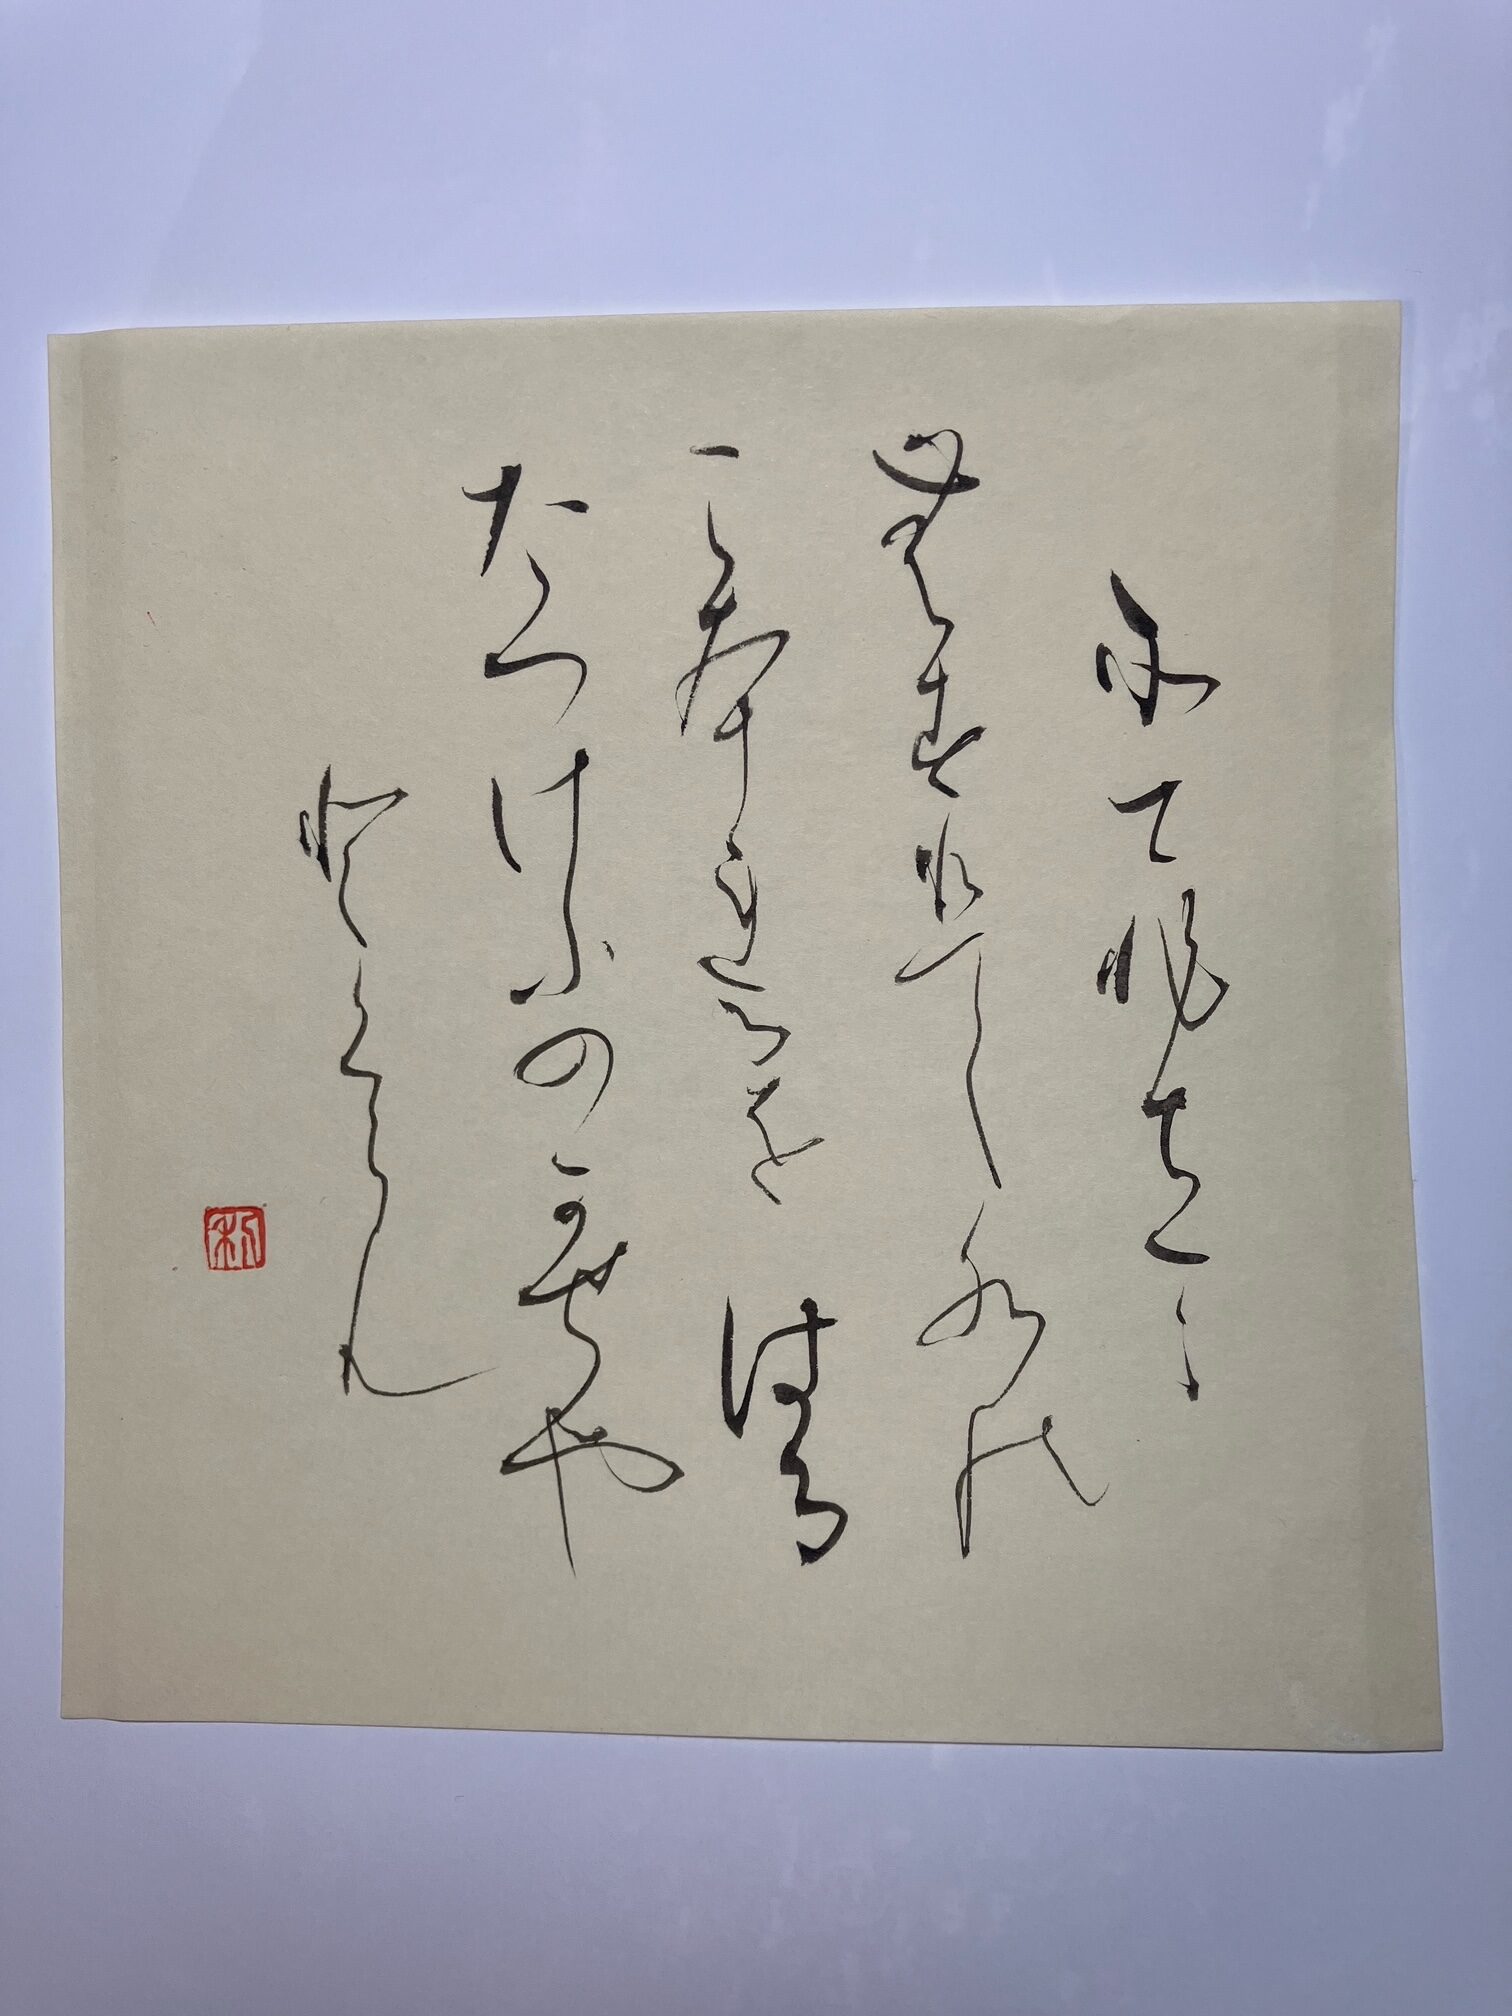 そてひちて
むすひし水の
こほれるをはる
たつけふのかせや
とくらん